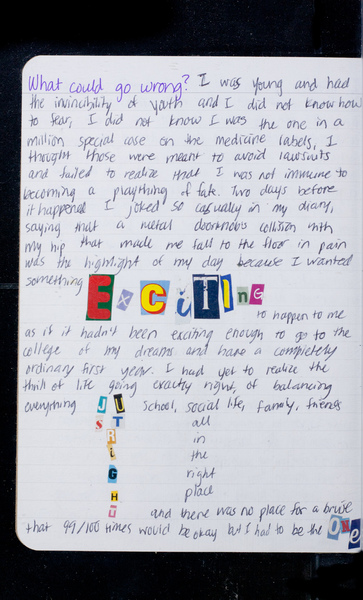 What could go wrong? I was young and had
the invincibility of youth and I did not know how
to fear, I did not know I was the one in a
million special case on the medicine labels, I
thought those were meant to avoid lawsuits
and failed to realize that I was not immune to
becoming a plaything of fate. Two days before
it happened I joked so casually in my diary,
saying that a metal doorknob's collision with
my hip that made me fall to the floor in pain
was the highlight of my day because I wanted
something ExCiTING
to happen to me
as if it hadn't been exciting enough to go to the
college of my dreams and have a completely
ordinary first year. I had yet to realize the
thrill of life going exactly right, of balancing
everything JUST school, social life, family, friends
RIGHT all
in
the
right
place
and there was no place for a bruise
that 99/100 times would be okay but I had to be the One